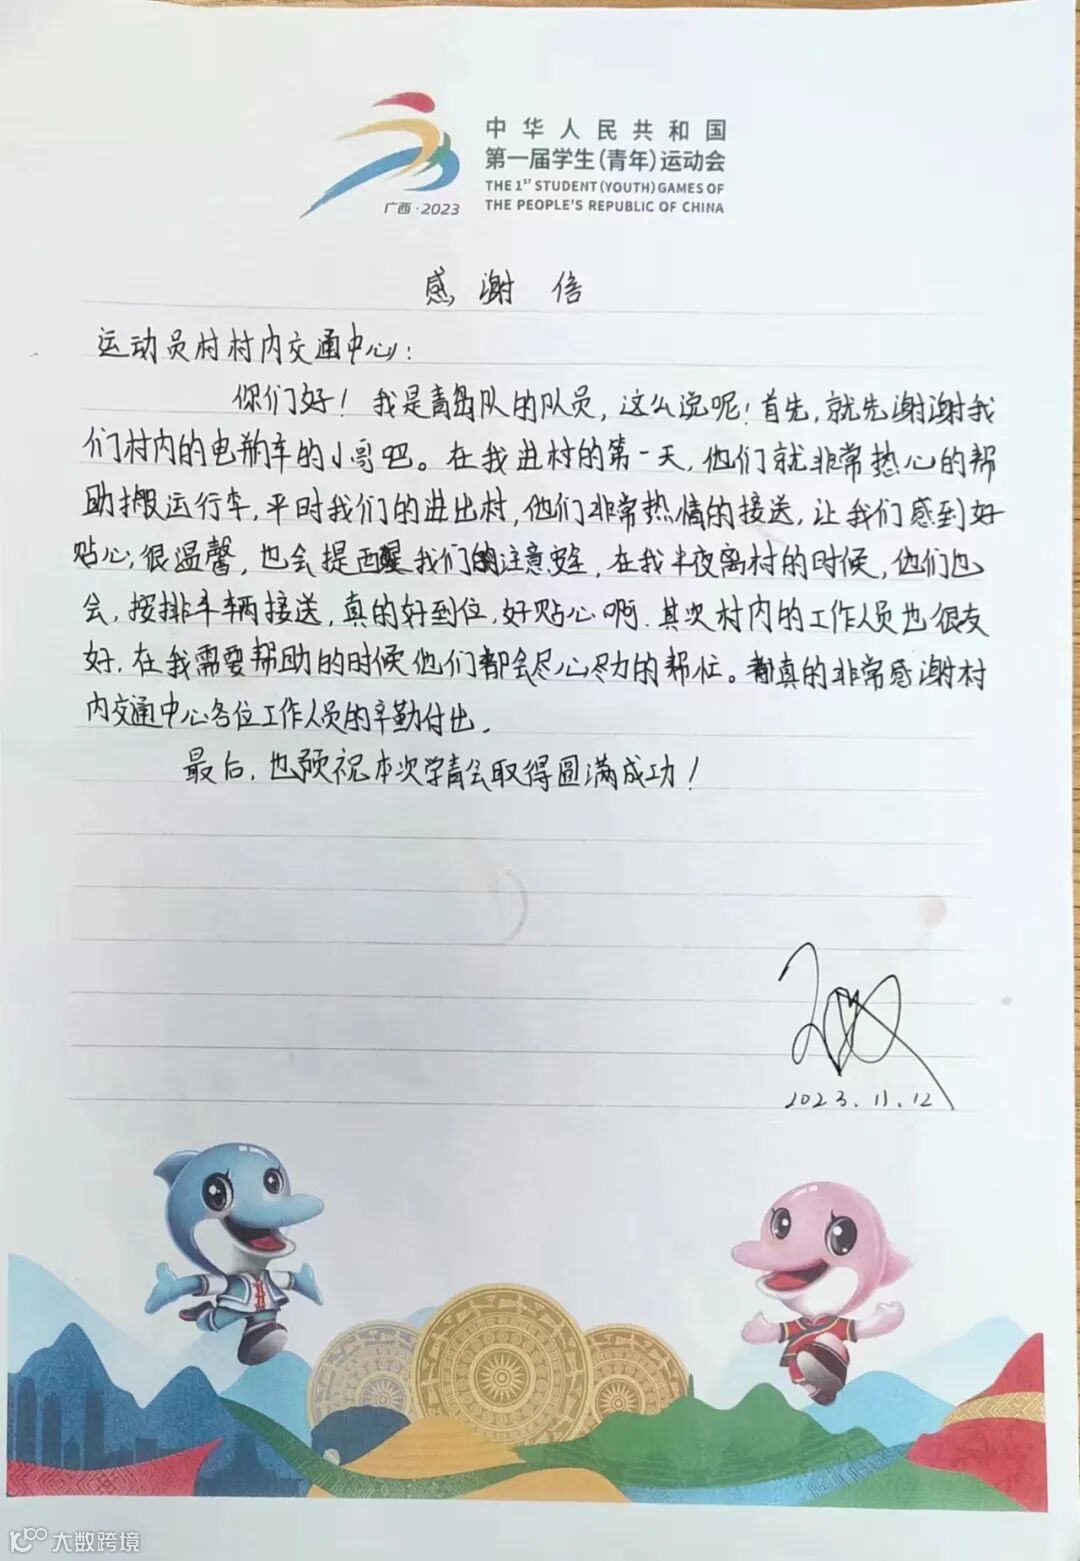 中华人民共和国
第一届学生(青年)运动会
THE 1ST STUDENT (YOUTH) GAMES OF
THE PEOPLE'S REPUBLIC OF CHINA
广西·2023
感谢信
运动员村村内交通中心:
你们好!我是青岛队的队员,这么说呢!首先,就先谢谢我
们村内的电瓶车的小哥吧。在我进村的第一天,他们就非常热心的帮
助搬运行车,平时我们的进出村,他们非常热情的接送,让我们感到好
贴心,很温馨,也会提醒我们的注意安全,在我半夜离村的时候,他们也
会,按排车辆接送,真的好到位,好贴心啊.其次村内的工作人员也很友
好.在我需要帮助的时候他们都会尽心尽力的帮忙。都真的非常感谢村
内交通中心各位工作人员的辛勤付出.
最后,也预祝本次学青会取得圆满成功!
2023.11.12
大数跨境